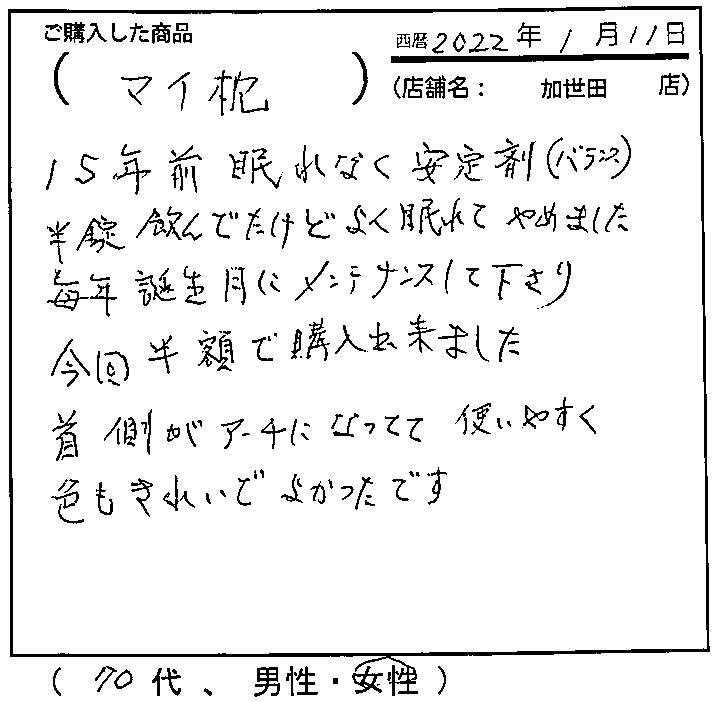 ご購入した商品
西暦2022年1月11日
(マイ枕)
(店舗名： 加世田 店)
15年前 眠れなく 安定剤(バランス)
半錠 飲んでたけど よく眠れて やめました
毎年 誕生月に メンテナンスして下さり
今回 半額で購入出来ました
首側が アーチに なってて 使いやすく
色もきれいで よかったです
(70代、男性・女性)